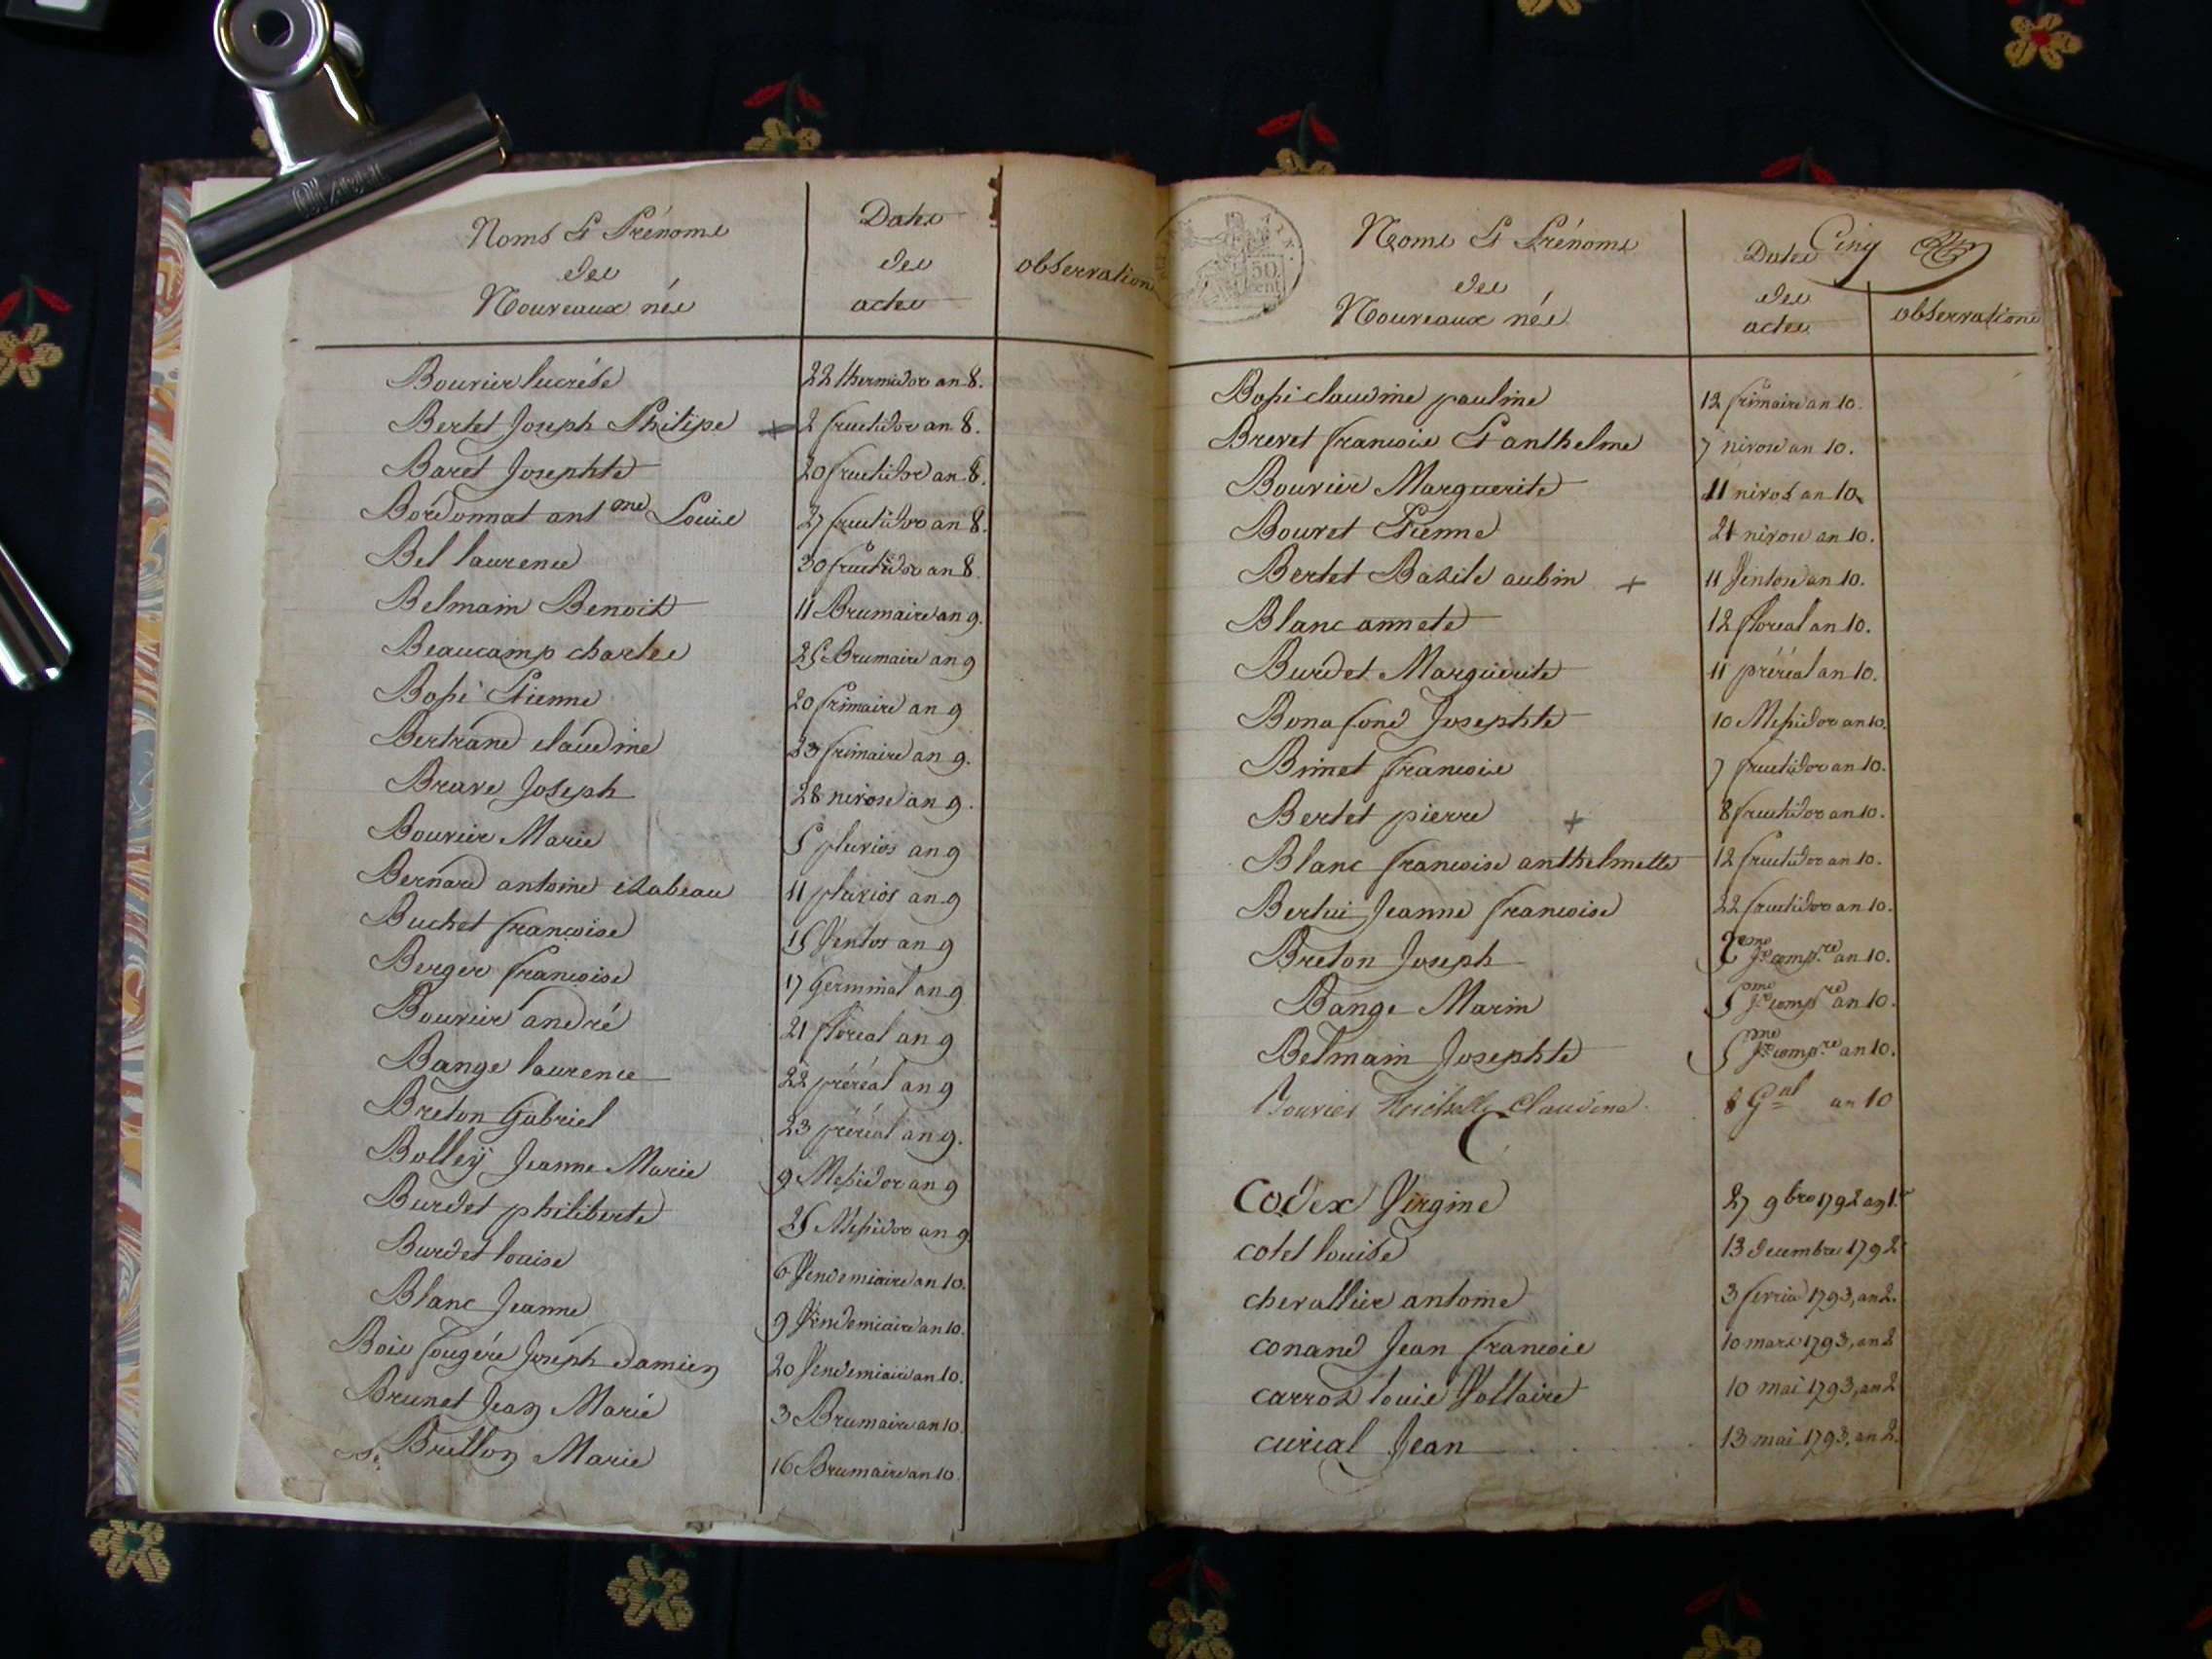 Noms Et Prénoms
des
Nouveaux nés
Dates
des
actes
observation
Bouvier lucrése 22 thermidor an 8.
Bertet Joseph Philipe + 2 fructidor an 8.
Baret Josephte 20 fructidor an 8.
Bordonnat ant.me Louise 27 fructidor an 8.
Bel laurence 30 fructidor an 8.
Belmain Benoit 11 Brumaire an 9.
Beaucamp charles 25 Brumaire an 9
Bossi Etienne 20 frimaire an 9
Bertrand claudine 23 frimaire an 9.
Brave Joseph 28 nivose an 9.
Bouvier Marie 5 pluvios an 9
Bernard antoine izabeau 11 pluvios an 9
Buchet françoise 15 Ventos an 9
Berger françoise 17 Germinal an 9
Bouvier andré 21 floréal an 9
Bange laurence 22 préréal an 9
Breton Gabriel 23 préréal an 9.
Bolleÿ Jeanne Marie 9 Messidor an 9
Burdet philiberte 25 Messidor an 9
Burdet louise 6 Vendemiaire an 10.
Blanc Jeanne 9 Vendemiaire an 10.
Bois fougére Joseph damien 20 Vendemiaire an 10.
Brunet Jean Marie 3 Brumaire an 10.
Brillon Marie 16 Brumaire an 10.
50.
cent
Noms Et Prénoms
des
Nouveaux nés
Cinq
Dates
des
actes
observations
Bossi claudine pauline 12 frimaire an 10.
Brevet francois Et anthelme 7 nivose an 10.
Bouvier Marguerite 11 nivos an 10.
Bouvet Etienne 21 nivose an 10.
Bertet Bazile aubin + 11 Ventose an 10.
Blanc annete 12 floreal an 10.
Burdet Marguerite 11 préréal an 10.
Bona fond Josephte 10 Messidor an 10.
Bimet francois 7 fructidor an 10.
Bertet pierre + 8 fructidor an 10.
Blanc francoise anthelmette 12 fructidor an 10.
Bertui Jeanne francoise 22 fructidor an 10.
Breton Joseph 2eme Jr comp.re an 10.
Bange Marin 5me Jr comp.re an 10.
Belmain Josephte 5me Jr comp.re an 10.
Bouvier Claudine 8 G.nal an 10
C
Codex Virgine 27 9bre 1792 an 1.er
cotet louise 13 decembre 1792
chevallier antoine 3 fevrier 1793, an 2.
conand Jean francois 10 mars 1793, an 2
carroz louis Voltaire 10 mai 1793, an 2
curial Jean 13 mai 1793, an 2.